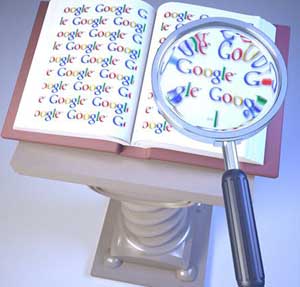 oogle Google G
le Google Goo
oogle Google G
le Google Goo
oogle Google G
le Google Goo
oogle Google G
le Google Go
oogle Google G
oogle Goo
le Goog
oogle
le Go
oogle
le G
oogle
le
Google
gle Goo
Google G
Google Goo